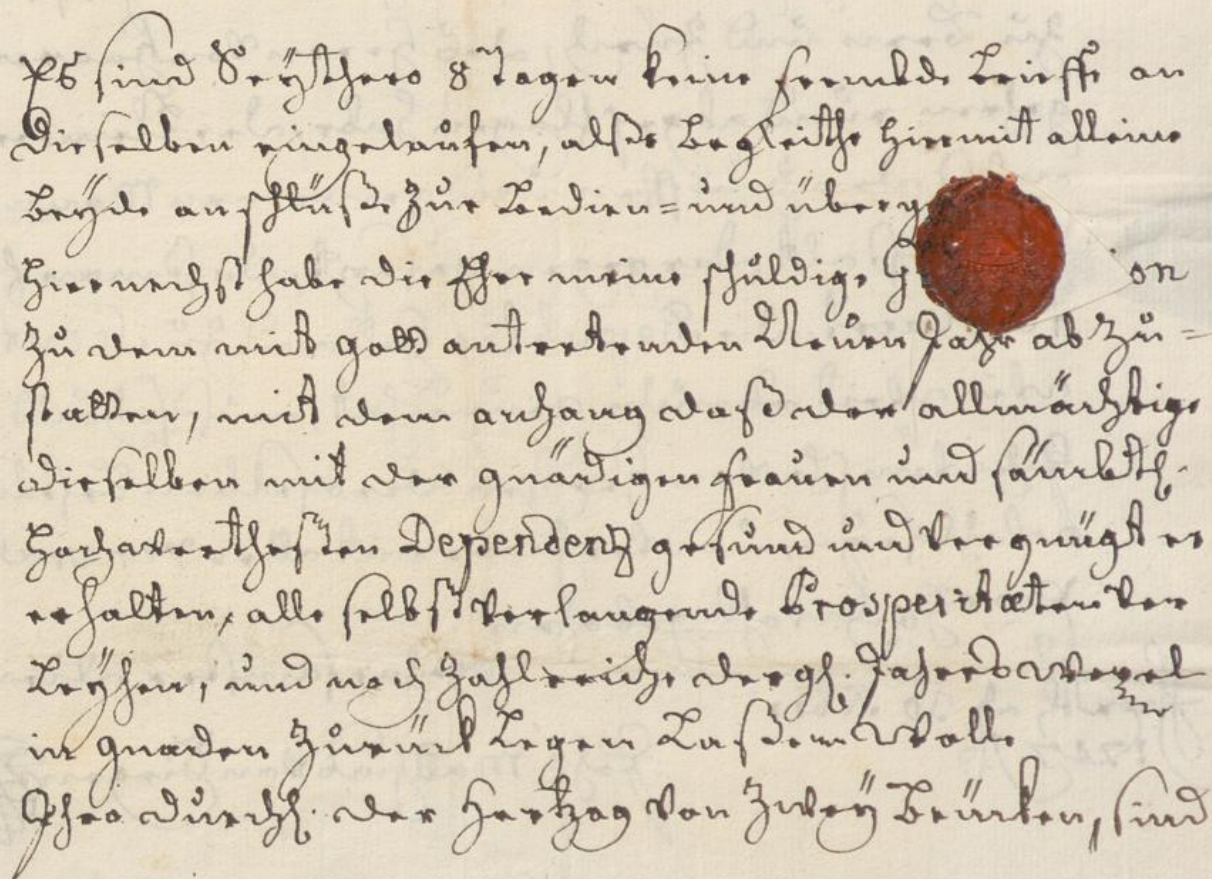 Es sind Seythero 8 Tagen keine frembde Brieffe an
dieselben eingelaufen, alße begleithe hiermit alleine
beyde anschlüße zur bedien= und überg
Hiernechst habe die Ehre meine schuldige ion
zu dem mit gott antrettenden Neuen Jahr ab zu=
statten, mit dem anhang daß der allmächtige
dieselben mit der gnädigen frauen und sämbtl.
Hochwerthesten Dependenz gesund und vergnügt er
erhalten, alle selbst verlangende Prosperitæten ver
leyhen, und noch zahlreiche dergl. Jahres wexel
in gnaden zurück legen laßen wolle
Ihro Durchl. der Hertzog von Zweybrücken, sind